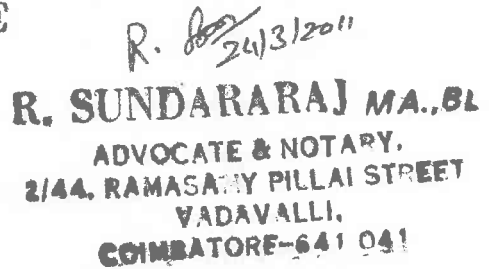 R.
24/3/2011
R. SUNDARARAJ MA.,BL
ADVOCATE & NOTARY,
2/44, RAMASAMY PILLAI STREET
VADAVALLI,
COIMBATORE-641 041